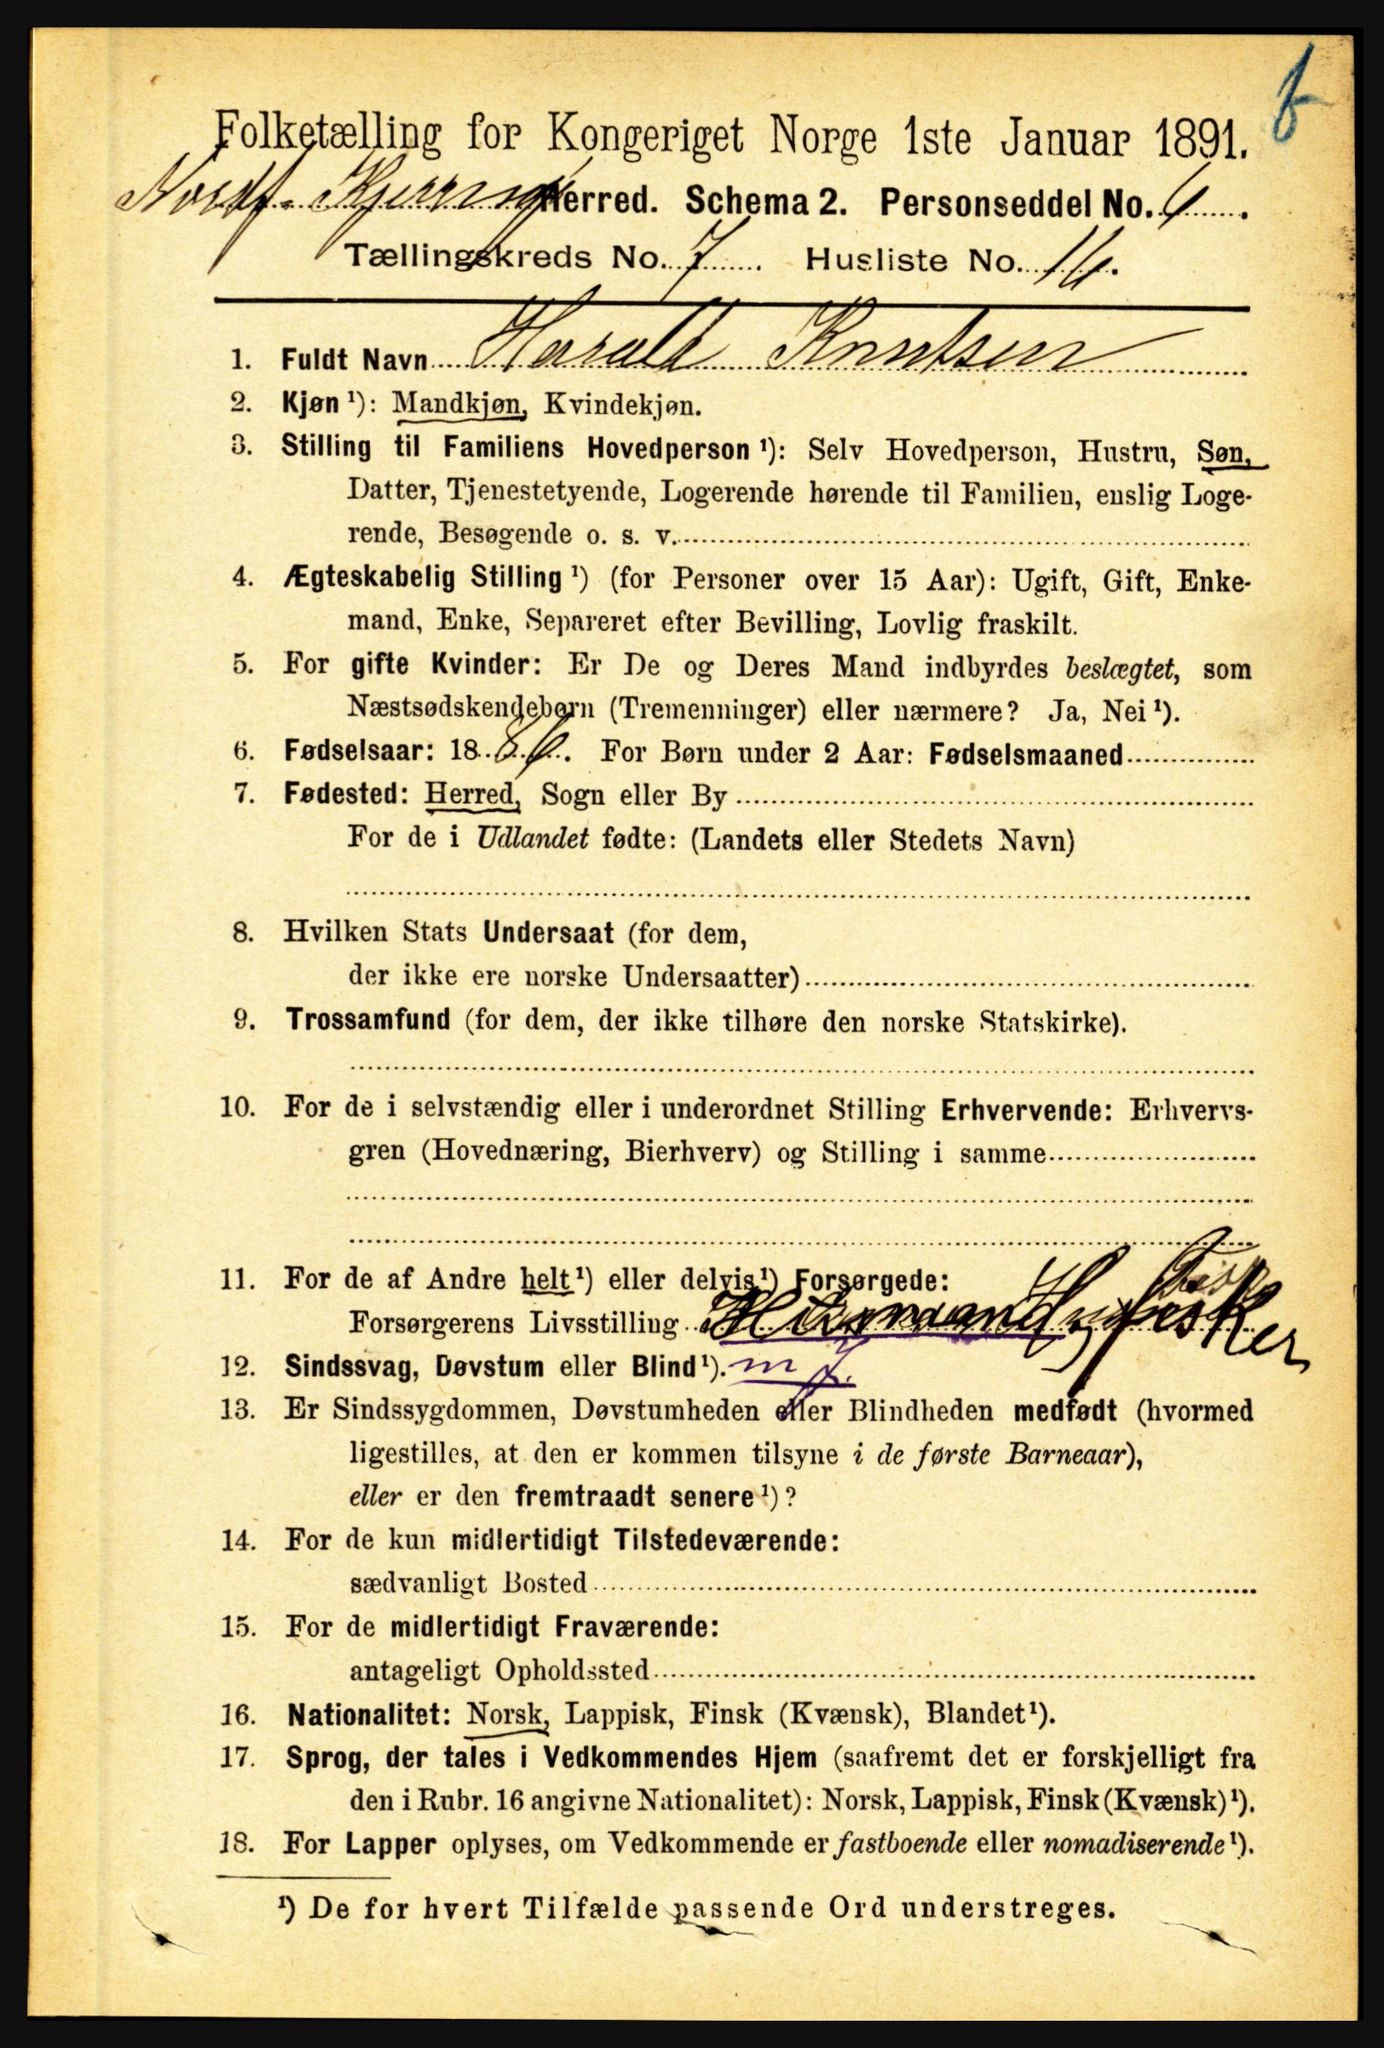 Folketælling for Kongeriget Norge 1ste Januar 1891.
Herred. Schema 2. Personseddel No. 6
Tællingskreds No. 7 Husliste No. 16.
1. Fuldt Navn Harald Knutsen
2. Kjøn ¹): Mandkjøn, Kvindekjøn.
3. Stilling til Familiens Hovedperson ¹): Selv Hovedperson, Hustru, Søn,
Datter, Tjenestetyende, Logerende hørende til Familien, enslig Loge-
rende, Besøgende o. s. v.
4. Ægteskabelig Stilling ¹) (for Personer over 15 Aar): Ugift, Gift, Enke-
mand, Enke, Separeret efter Bevilling, Lovlig fraskilt.
5. For gifte Kvinder: Er De og Deres Mand indbyrdes beslægtet, som
Næstsødskendebørn (Tremenninger) eller nærmere? Ja, Nei ¹).
6. Fødselsaar: 1886. For Børn under 2 Aar: Fødselsmaaned
7. Fødested: Herred, Sogn eller By
For de i Udlandet fødte: (Landets eller Stedets Navn)
8. Hvilken Stats Undersaat (for dem,
der ikke ere norske Undersaatter)
9. Trossamfund (for dem, der ikke tilhøre den norske Statskirke).
10. For de i selvstændig eller i underordnet Stilling Erhvervende: Erhvervs-
gren (Hovednæring, Bierhverv) og Stilling i samme
11. For de af Andre helt ¹) eller delvis ¹) Forsørgede:
Forsørgerens Livsstilling Husmand fisker
12. Sindssvag, Døvstum eller Blind ¹). m J.
13. Er Sindssygdommen, Døvstumheden eller Blindheden medfødt (hvormed
ligestilles, at den er kommen tilsyne i de første Barneaar),
eller er den fremtraadt senere ¹)?
14. For de kun midlertidigt Tilstedeværende:
sædvanligt Bosted
15. For de midlertidigt Fraværende:
antageligt Opholdssted
16. Nationalitet: Norsk, Lappisk, Finsk (Kvænsk), Blandet ¹).
17. Sprog, der tales i Vedkommendes Hjem (saafremt det er forskjelligt fra
den i Rubr. 16 angivne Nationalitet): Norsk, Lappisk, Finsk (Kvænsk) ¹).
18. For Lapper oplyses, om Vedkommende er fastboende eller nomadiserende ¹).
¹) De for hvert Tilfælde passende Ord understreges.